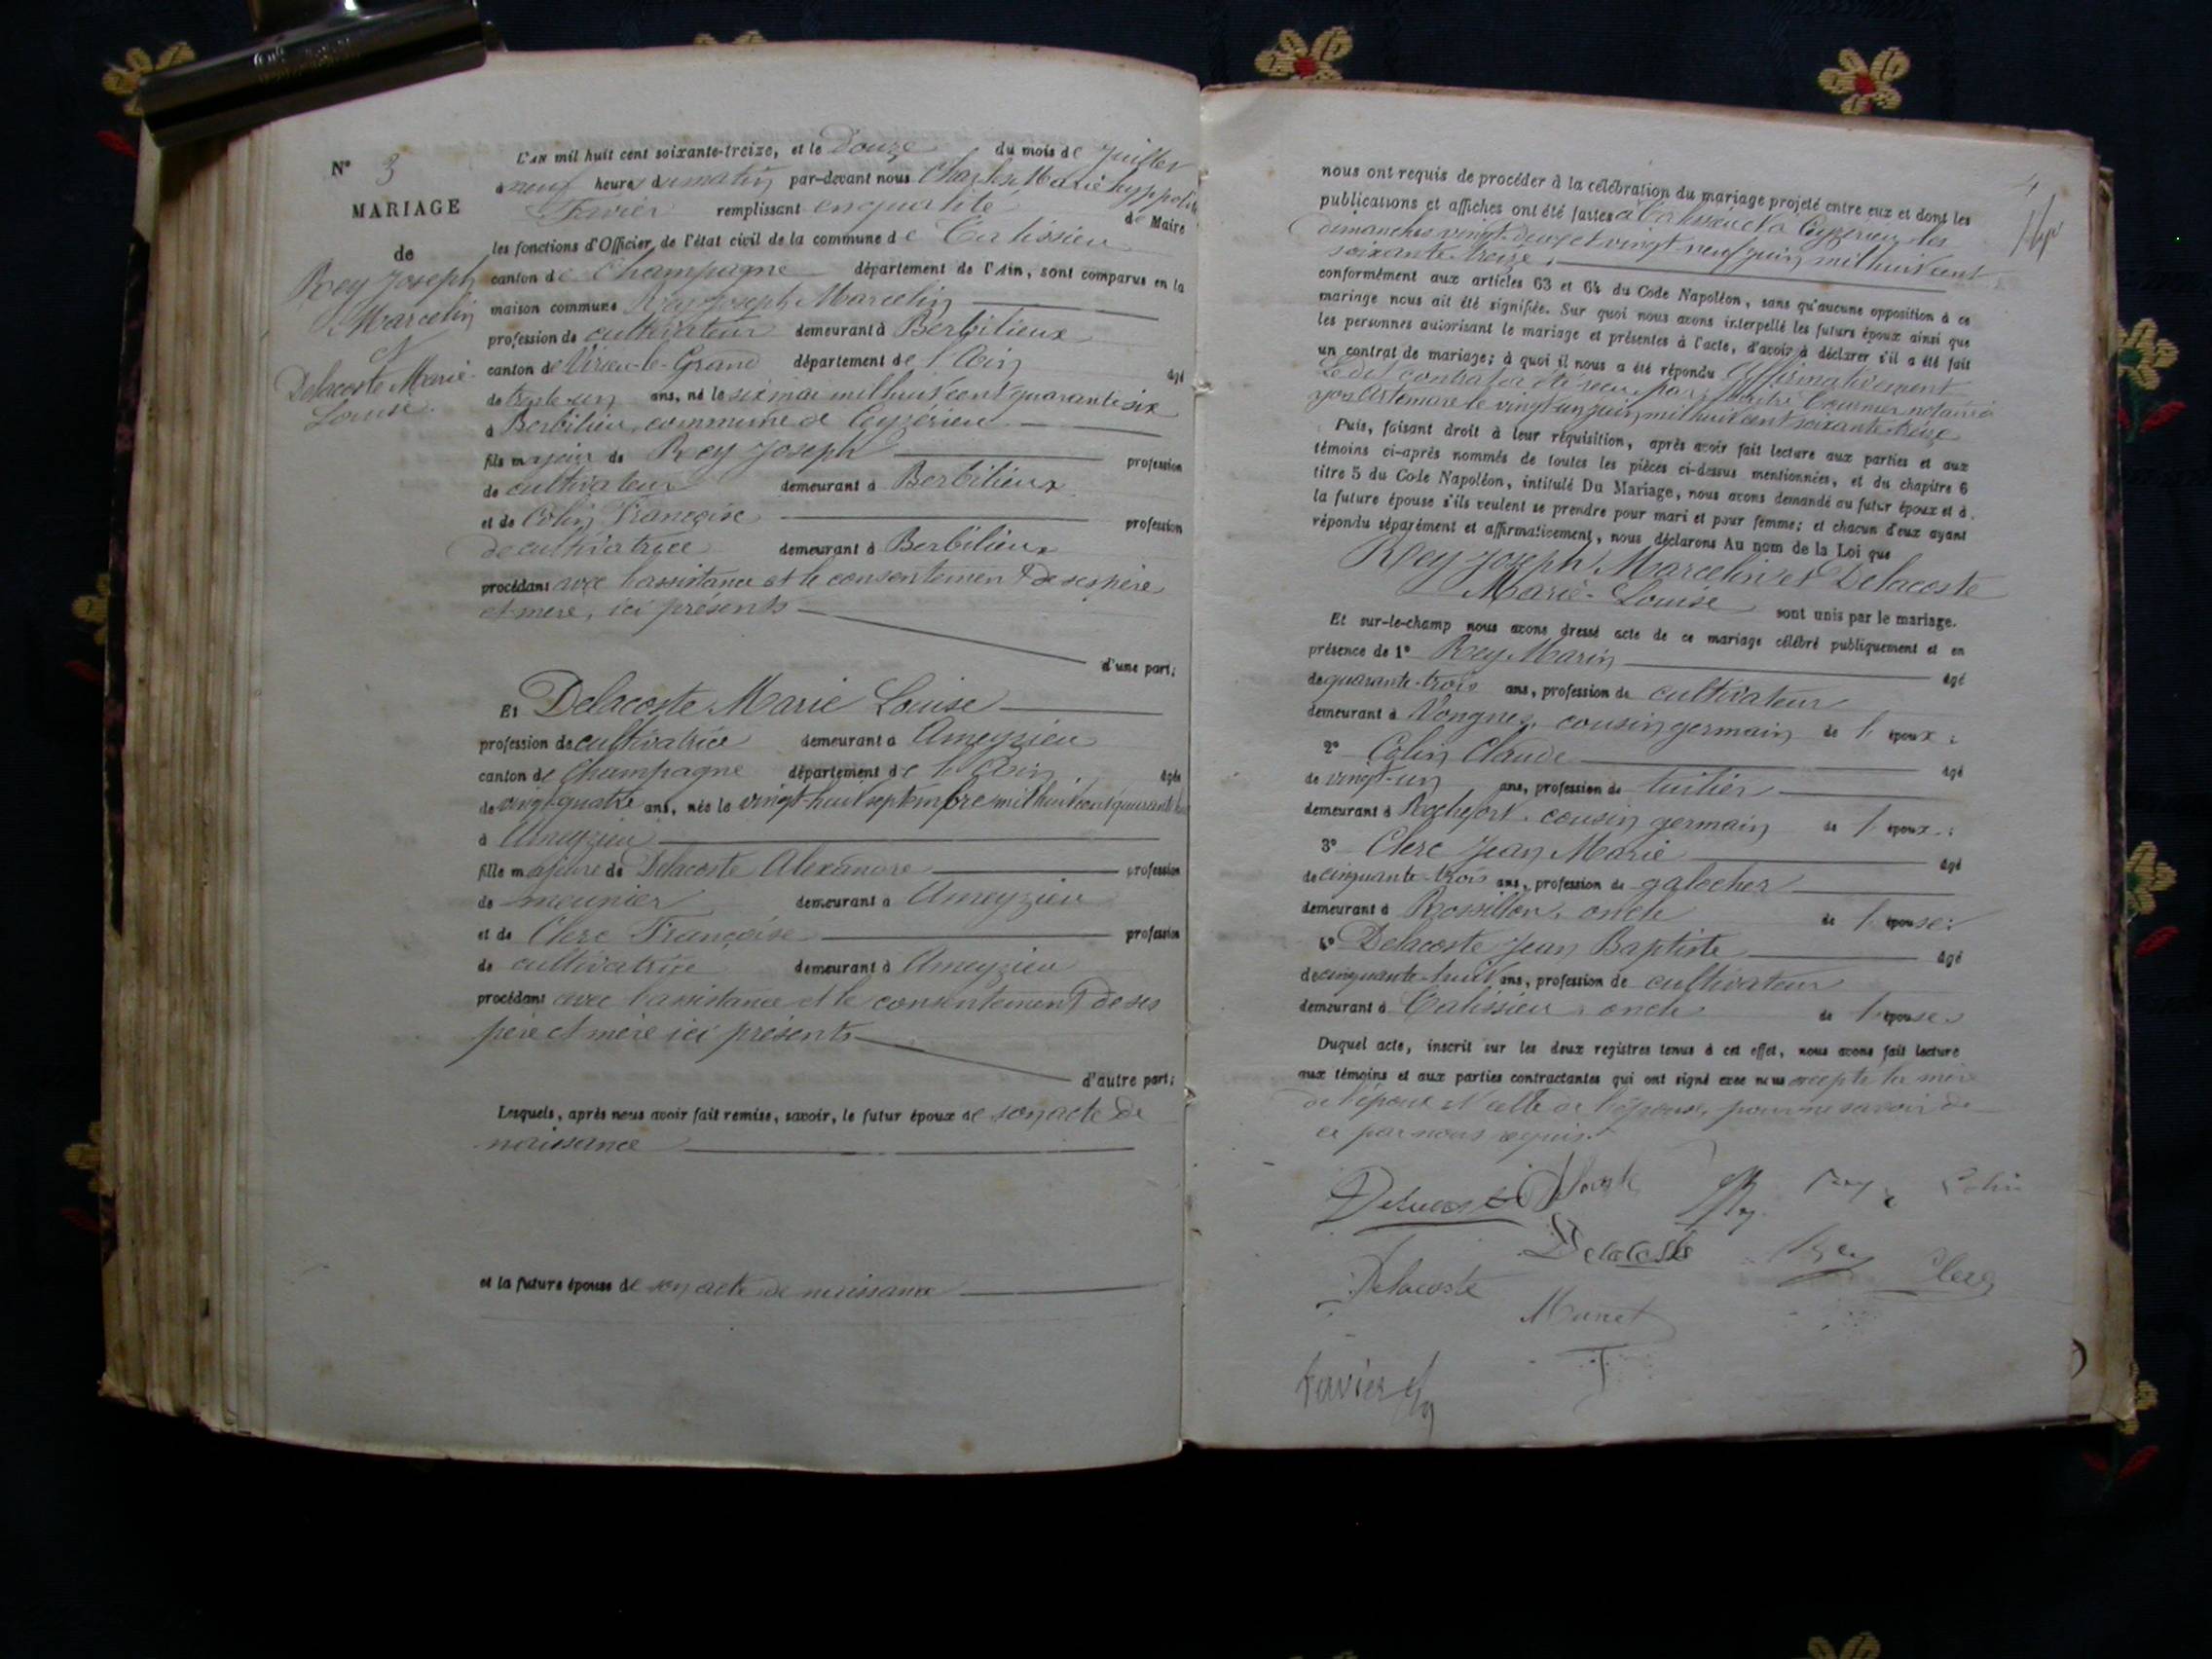 N° 3
MARIAGE
de
Rey Joseph
Marcelin
et
Delacoste Marie
Louise.
L'AN mil huit cent soixante-treize, et le Douze du mois de Juillet
à neuf heures du matin par-devant nous Charles Marie hyppolite
Favier remplissant en qualité de Maire
les fonctions d'Officier de l'état civil de la commune de Talissieu
canton de Champagne département de l'Ain, sont comparus en la
maison commune Rey Joseph Marcelin
profession de cultivateur demeurant à Berbilieux
canton de Virieu-le-Grand département de l'Ain âgé
de ans, né le six mai mil huit cent quarante six
à Berbilieu, commune de Ceyzérieu
fils majeur de Rey Joseph profession
de cultivateur demeurant à Berbilieux
et de Colin Françoise profession
de cultivatrice demeurant à Berbilieux
procédant avec l'assistance et le consentement de ses père
et mère, ici présents
d'une part;
Et Delacoste Marie Louise
profession de cultivatrice demeurant à Ameyzieu
canton de Champagne département de l'Ain âgée
de vingt-quatre ans, née le vingt-huit septembre mil huit cent quarante huit
à Ameyzieu
fille majeure de Delacoste Alexandre profession
de meunier demeurant à Ameyzieu
et de Clerc Françoise profession
de cultivatrice demeurant à Ameyzieu
procédant avec l'assistance et le consentement de ses
père et mère ici présents
d'autre part;
Lesquels, après nous avoir fait remise, savoir, le futur époux de son acte de
naissance
et la future épouse de son acte de naissance
4
nous ont requis de procéder à la célébration du mariage projeté entre eux et dont les
publications et affiches ont été faites à Talissieu et à Ceyzérieu les
dimanches vingt-deux et vingt-neuf juin mil huit cent
soixante treize,
conformément aux articles 63 et 64 du Code Napoléon, sans qu'aucune opposition à ce
mariage nous ait été signifiée. Sur quoi nous avons interpellé les futurs époux ainsi que
les personnes autorisant le mariage et présentes à l'acte, d'avoir à déclarer s'il a été fait
un contrat de mariage; à quoi il nous a été répondu affirmativement
Le dit contrat a été reçu par maître notaire à
Artemare le vingt-un juin mil huit cent soixante treize
Puis, faisant droit à leur réquisition, après avoir fait lecture aux parties et aux
témoins ci-après nommés de toutes les pièces ci-dessus mentionnées, et du chapitre 6
titre 5 du Code Napoléon, intitulé Du Mariage, nous avons demandé au futur époux et à
la future épouse s'ils veulent se prendre pour mari et pour femme; et chacun d'eux ayant
répondu séparément et affirmativement, nous déclarons Au nom de la Loi que
Rey Joseph Marcelin et Delacoste
Marie-Louise sont unis par le mariage.
Et sur-le-champ nous avons dressé acte de ce mariage célébré publiquement et en
présence de 1° Rey Marin âgé
de quarante-trois ans, profession de cultivateur
demeurant à Vongnes, cousin germain de l'époux;
2° Colin Claude âgé
de vingt-un ans, profession de tuilier
demeurant à Rochefort, cousin germain de l'époux;
3° Clerc Jean Marie âgé
de cinquante-trois ans, profession de galocher
demeurant à Rossillon, oncle de l'épouse;
4° Delacoste Jean Baptiste âgé
de cinquante-huit ans, profession de cultivateur
demeurant à Talissieu, oncle de l'épouse
Duquel acte, inscrit sur les deux registres tenus à cet effet, nous avons fait lecture
aux témoins et aux parties contractantes qui ont signé avec nous excepté la mère
de l'époux et celle de l'épouse, pour ne savoir de
ce par nous requis.
Delacoste Rey Rey Colin
Delacoste Rey Clerc
Delacoste
Favier